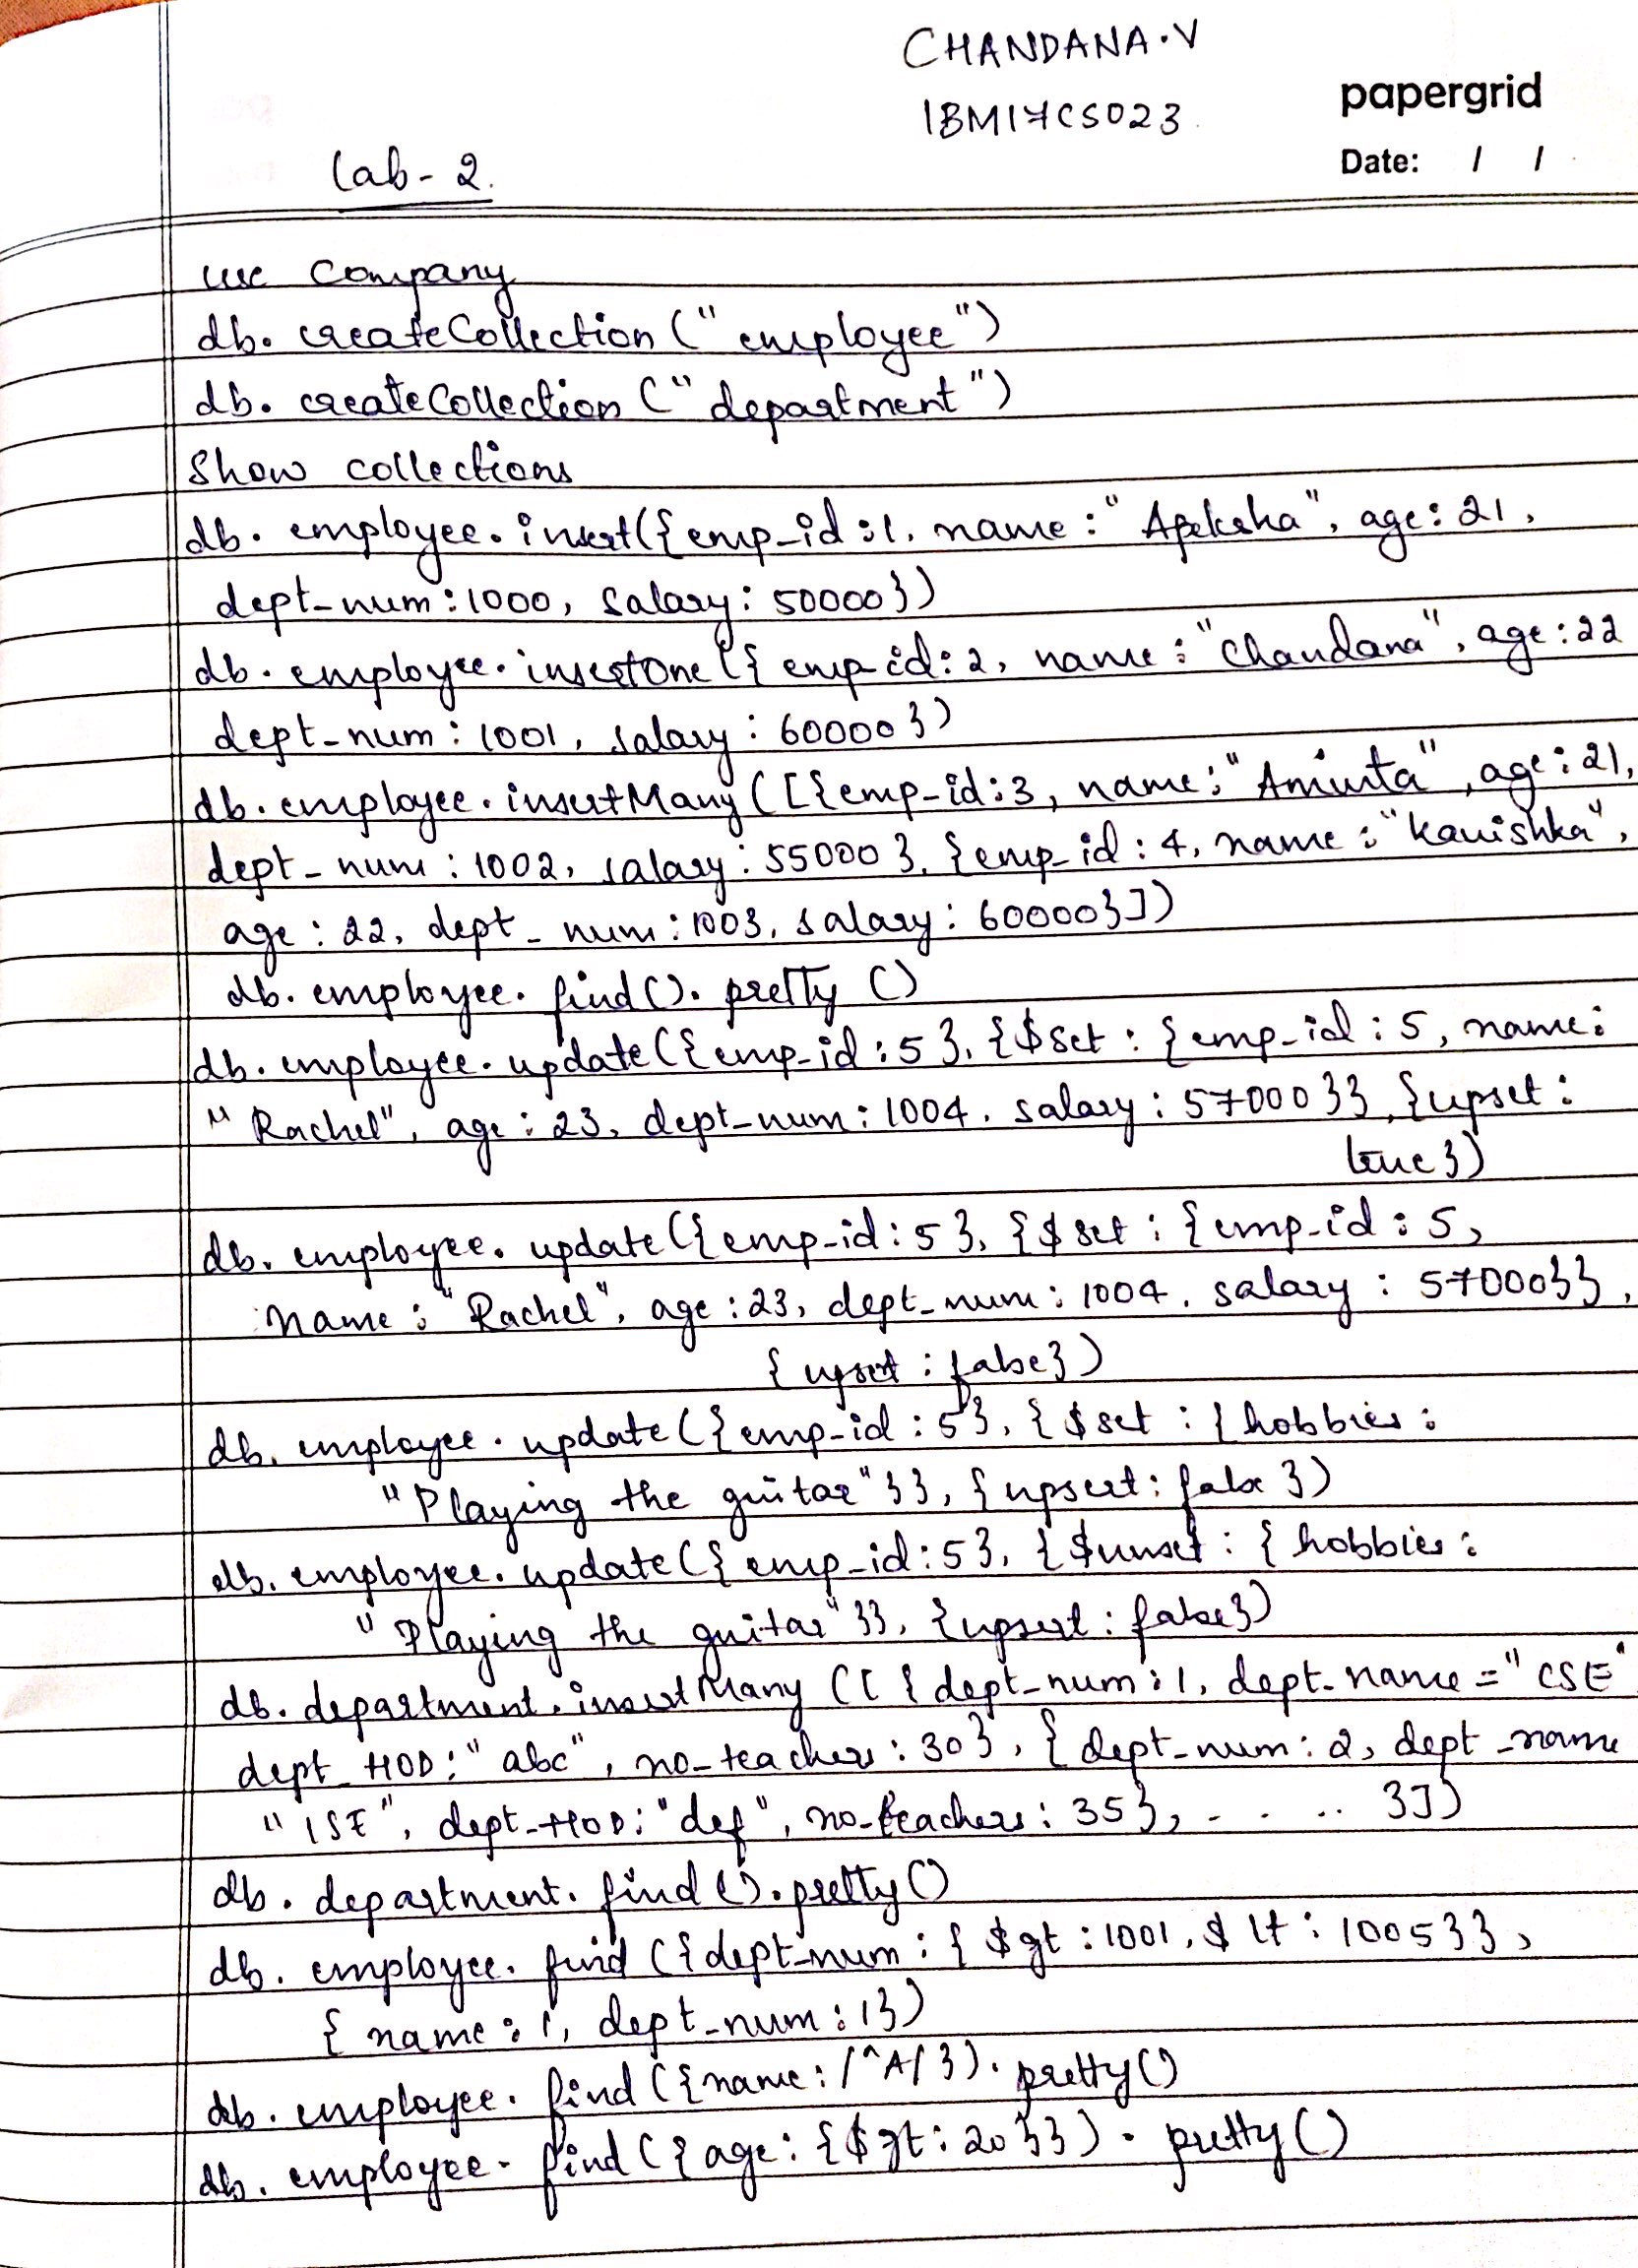 CHANDANA.V
1BM17CS023
papergrid
Date: / /
Lab-2.
use Company
db. createCollection ("employee")
db. createCollection ("department")
Show collections
db. employee. insert({emp_id:1, name:"Apeksha", age:21,
dept_num:1000, Salary: 50000})
db. employee. insertOne ({ emp_id:2, name:"Chandana", age:22
dept_num: 1001, salary: 60000})
db. employee. insertMany ([{emp_id:3, name:"Amiuta", age:21,
dept_num: 1002, salary: 55000}, {emp_id: 4, name:"kanishka",
age: 22, dept_num:1003, salary: 60000}])
db. employee. find(). pretty ()
db. employee. update({emp_id:5}, {$set: {emp_id: 5, name:
"Rachel", age: 23, dept_num: 1004, salary: 57000}}, {upset:
true})
db. employee. update({emp_id:5}, {$set: {emp_id: 5,
Name: "Rachel", age:23, dept_num: 1004, salary: 57000}},
{upset: false})
db. employee. update({emp_id: 5}, {$set: {hobbies:
"Playing the guitar"}}, {upsert: false})
db. employee. update({emp_id:5}, {$unset: {hobbies:
"Playing the guitar"}}, {upsert: false})
db. department. insertMany ([ {dept_num:1, dept_name="CSE"
dept_HOD:"abc", no_teachers: 30}, {dept_num: 2, dept_name
"ISE", dept_HOD:"def", no_teachers: 35}, - . .. }])
db. department. find(). pretty()
db. employee. find ({dept_num: { $gt:1001, $lt: 1005}},
{ name: 1, dept_num:1})
db. employee. find ({name: /^A/}). pretty()
db. employee. find ({age: {$gt: 20}}). pretty()